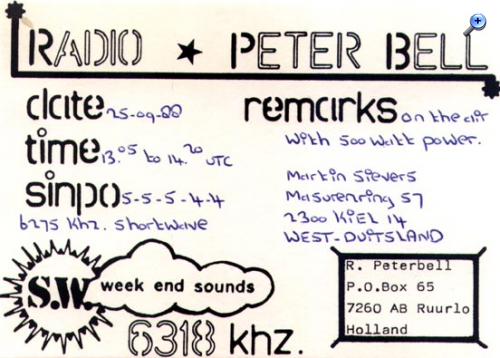 RADIO ★ PETER BELL
date 25-09-88
time 13.05 to 14.20 UTC
sinpo 5-5-5-4-4
6275 Khz. shortwave
remarks on the air
with 500 watt power.
Martin Sievers
Masurenring 57
2300 KIEL 14
WEST-DUITSLAND
S.W. week end sounds
6318 khz.
R. Peterbell
P.O.Box 65
7260 AB Ruurlo
Holland